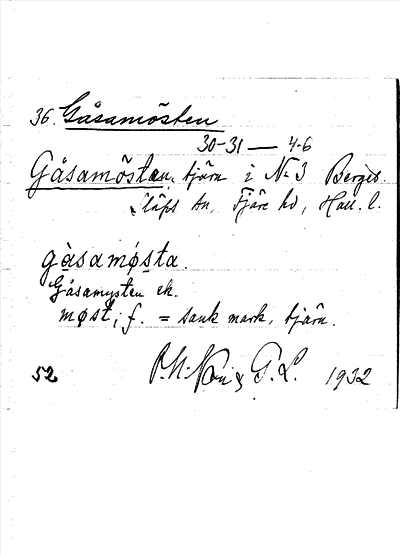 36. Gåsamösten
30-31 — 4-6
Gåsamösten, tjärn i N:3 Berges.
Släps sn, Fjäre hd, Hall. l.
gåsamøsta.
Gåsamysten ek.
møst, f. = sank mark, tjärn.
52 & G.L. 1932